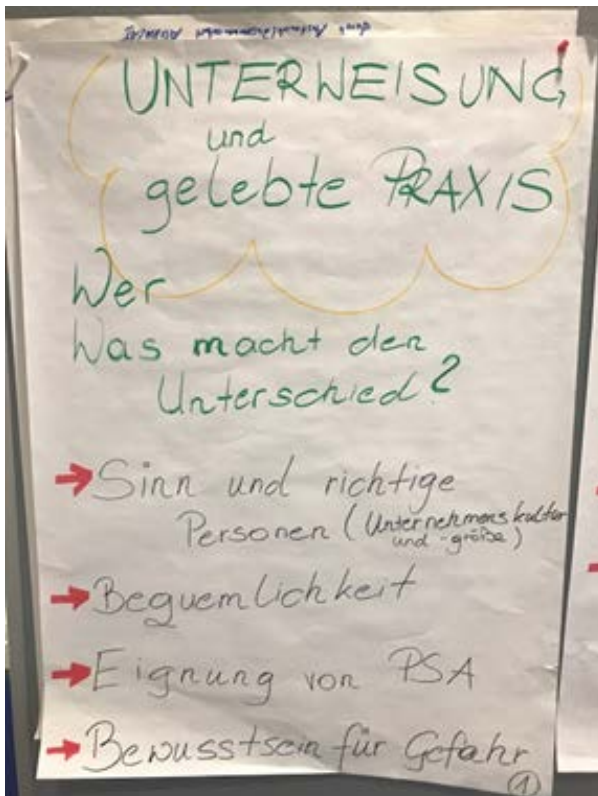 UNTERWEISUNG
und
gelebte PRAXIS
Wer
Was macht den
Unterschied?
Sinn und richtige
Personen (Unternehmenskultur
und -größe)
Bequemlichkeit
Eignung von PSA
Bewusstsein für Gefahr
1